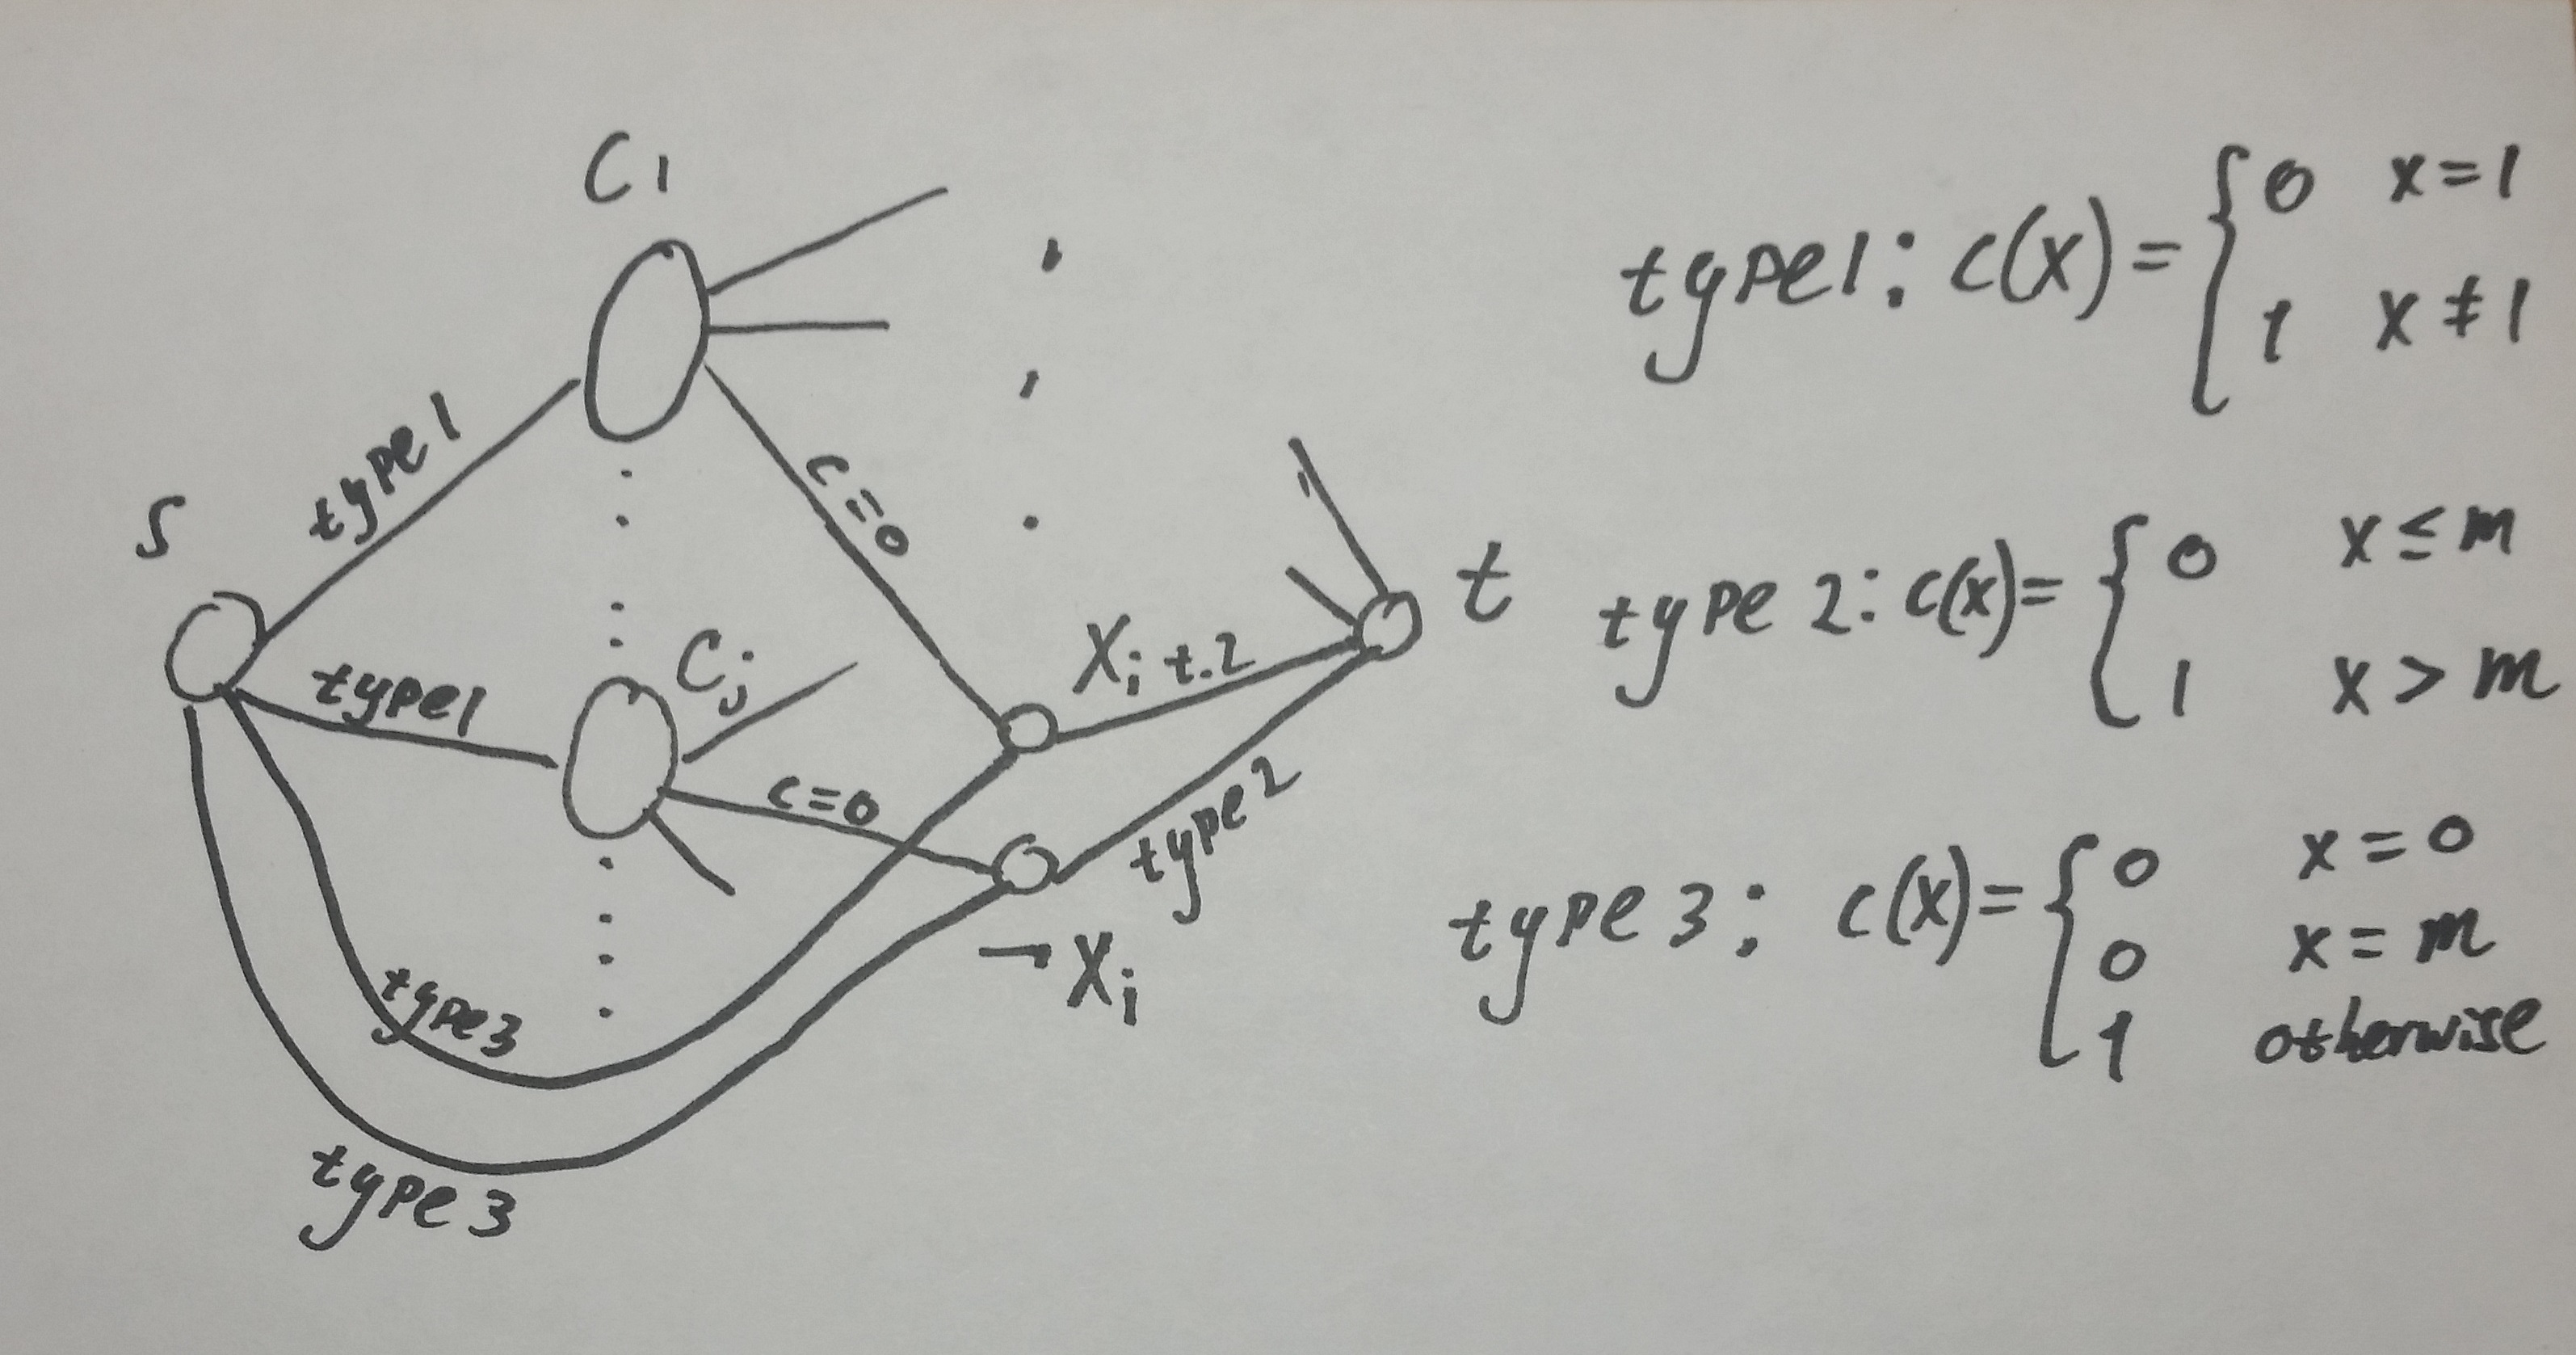 S
C1
type 1
type 1
type 3
type 3
Cj
c=0
c=0
Xi
t.2
¬Xi
type 2
t
type 1: c(x) = { 0 x=1
1 x≠1
type 2: c(x) = { 0 x≤m
1 x>m
type 3: c(x) = { 0 x=0
0 x=m
1 otherwise